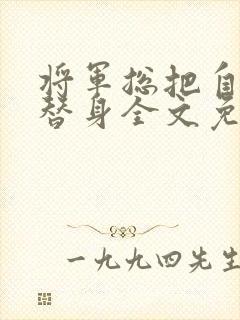 将军总把自
替身全文免
一九九四先生